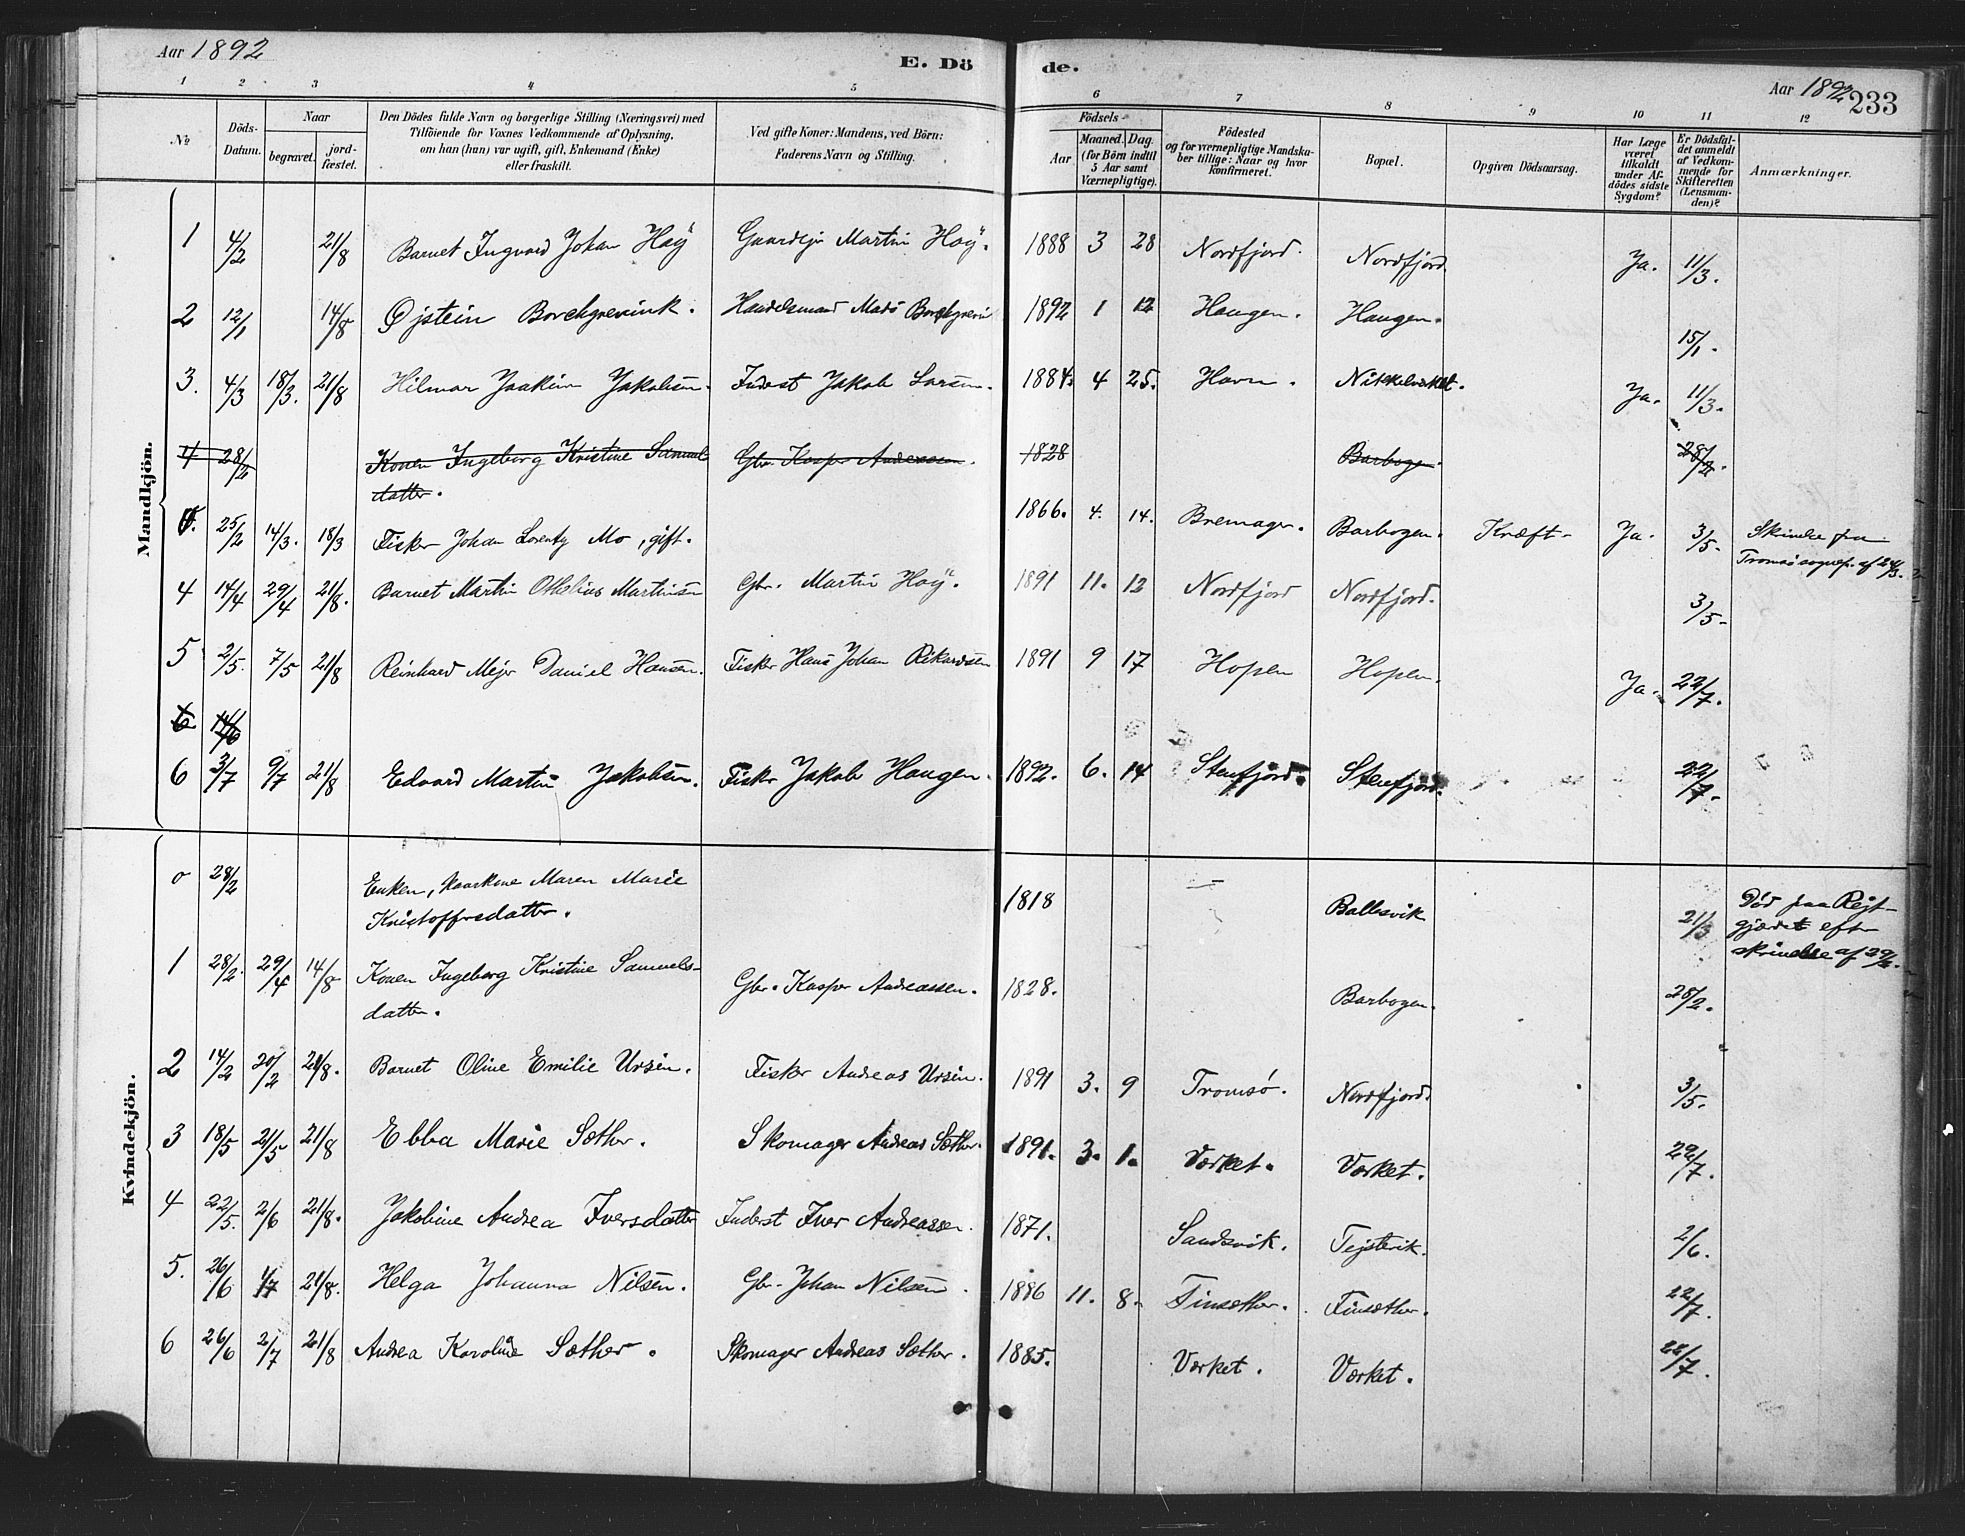 Aar 1892
E. Dö
de.
Aar 1892
233
1 2 3 4 5 6 7 8 9 10 11 12
№
Döds-
Datum.
Naar
begravet.
jord-
fæstet.
Den Dödes fulde Navn og borgerlige Stilling (Næringsvei) med
Tilföiende for Voxnes Vedkommende af Oplysning,
om han (hun) var ugift, gift, Enkemand (Enke)
eller fraskilt.
Ved gifte Koner: Mandens, ved Börn:
Faderens Navn og Stilling.
Födsels-
Aar
Maaned. Dag.
(for Börn indtil
5 Aar samt
Værnepligtige).
Födested
og for værnepligtige Mandska-
ber tillige: Naar og hvor
konfirmeret.
Bopæl.
Opgiven Dödsaarsag.
Har Læge
været
tilkaldt
under Af-
dödes sidste
Sygdom?
Er Dödsfal-
det anmeldt
af Vedkom-
mende for
Skifteretten
(Lensman-
den)?
Anmærkninger.
Mandkjön.
1 4/2 21/8 Barnet Ingvard Johan Høy Gaardejer Martin Høy. 1888 3 28 Nordfjord. Nordfjord Ja. 11/3.
2 12/1 14/8 Øjstein Borchgrevink. Handelsmand Mads Borchgrevin 1892 1 12 Haugen. Haugen. 15/1.
3. 4/3 18/3. 21/8 Hilmar Joakim Jakobsen. Inderst Jakob Larsen. 1884. 4 25. Havn. Nikkelverket. Ja. 11/3.
4 28/2 Konen Ingeborg Kristine Samuels
datter. Gbr. Kasper Andreassen. 1828 Barbogen. 28/2.
25/2 14/3. 18/3 Fisker Johan Lorentz Mo, gift. 1866. 4. 14. Bremager. Barbogen. Kræft. Ja. 3/5. Skrivelse fra
Tromsø sognepr. af 24/3.
4 14/4 29/4 21/8. Barnet Martin Othelius Martinsen Gbr. Martin Høy. 1891 11. 12 Nordfjord Nordfjord. 3/5.
5 2/5. 7/5 21/8 Reinhard Mejer Daniel Hansen. Fisker Hans Johan Rikardsen 1891 9 17 Hopen Hopen. Ja. 22/7.
6 14/6
6 3/7 9/7 21/8 Edvard Martin Jakobsen. Fisker Jakob Haugen. 1892. 6. 14 Stenfjord. Stenfjord. 22/7.
Kvindekjön.
0 28/2 Enken, Maren Marie
Kristoffersdatter. 1818 Ballesvik 21/3 Død paa Rejt-
gjærdet efter
skrivelse af 29/2.
1 28/2. 29/4 14/8 Konen Ingeborg Kristine Samuels-
datter. Gbr. Kasper Andreassen. 1828. Barbogen. 28/2.
2 14/2 20/2 21/8. Barnet Oline Emilie Ursin. Fisker Andreas Ursin. 1891 3. 9 Tromsø. Nordfjord. 3/5.
3 18/5 21/5 21/8 Ebba Marie Sæther. Skomager Andreas Sæther. 1891. 3. 1. Værket. Værket. 22/7.
4 22/5. 2/6 21/8. Jakobine Andrea Iversdatter Inderst Iver Andreassen. 1871. Sandsvik. Tejstevik. 2/6.
5. 26/6 1/7 21/8. Helga Johanna Nilsen. Gbr. Johan Nilsen. 1886 11. 8. Finsæther. Finsæther. 22/7.
6 26/6 2/7 21/8 Andrea Karoline Sæther. Skomager Andreas Sæther. 1885. Værket. Værket. 22/7.